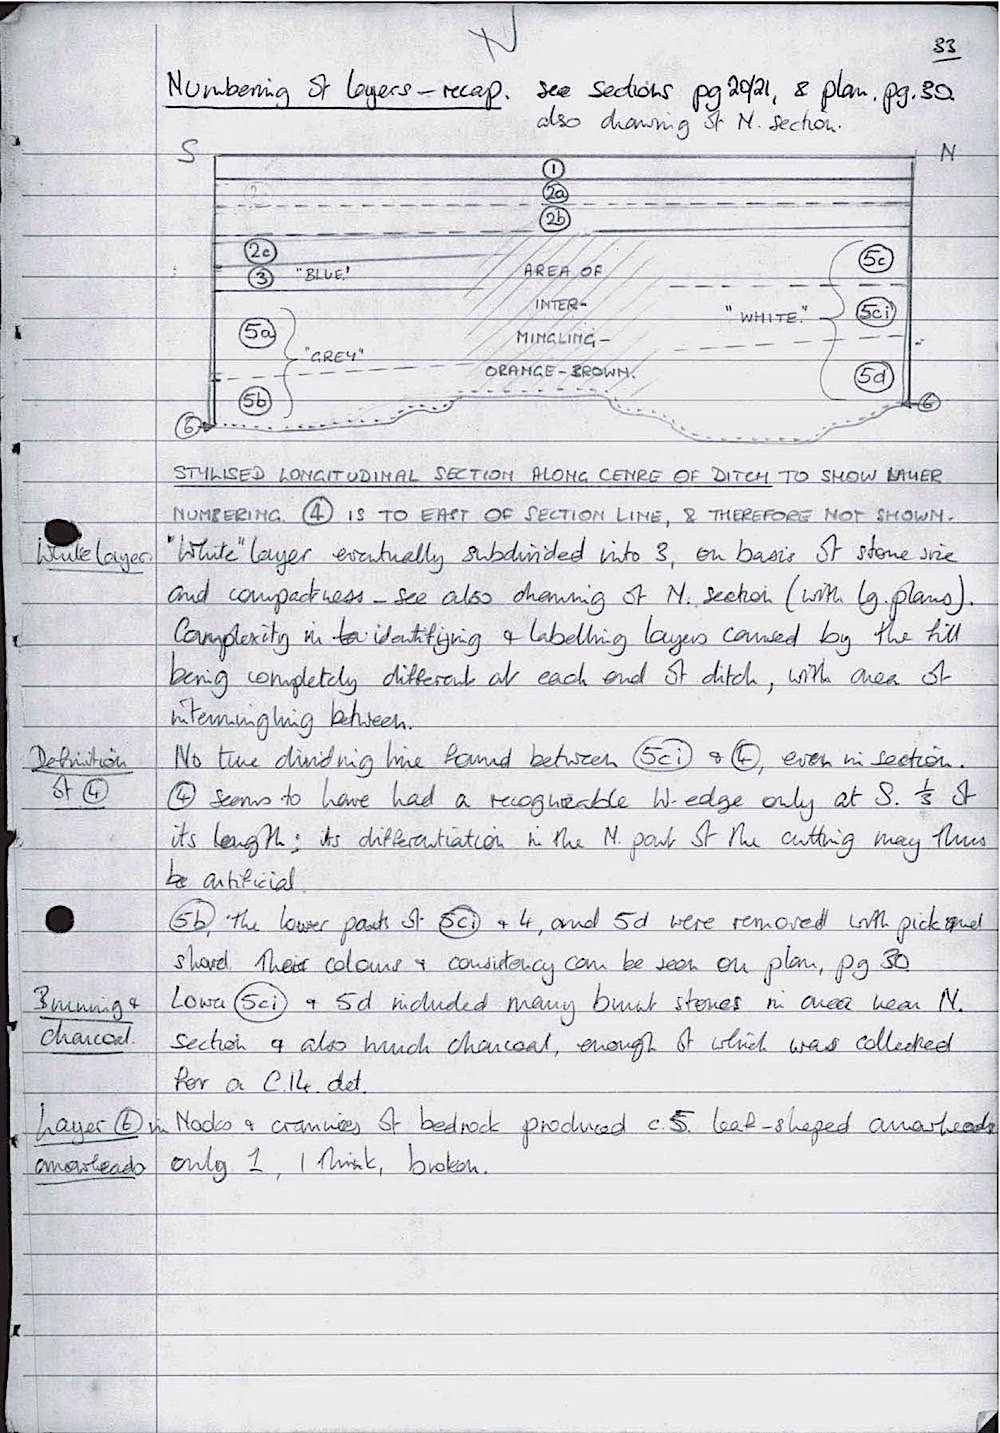 33
Numbering of layers - recap. see sections pg 20/21, & plan. pg. 30
also drawing of N. section.
S
N
1
2a
2b
2c
3 "BLUE"
5a
"GREY"
5b
6
AREA OF
INTER-
MINGLING -
ORANGE-BROWN.
"WHITE."
5c
5ci
5d
6
STYLISED LONGITUDINAL SECTION ALONG CENRE OF DITCH TO SHOW LAYER
NUMBERING. 4 IS TO EAST OF SECTION LINE, & THEREFORE NOT SHOWN.
White layer. "White" layer eventually subdivided into 3, on basis of stone size
and compactness - see also drawing of N. section (with lg. plans).
Complexity in identifying & labelling layers caused by the fill
being completely different at each end of ditch, with area of
intermingling between.
Definition No true dividing line found between 5ci & 4, even in section.
of 4 4 seems to have had a recognizable W. edge only at S. 1/3 of
its length; its differentiation in the N. part of the cutting may thus
be artificial.
5b, the lower parts of 5ci & 4, and 5d were removed with pick and
shovel. Their colours & consistency can be seen on plan, pg 30
Burning & Lower 5ci & 5d included many burnt stones in area near N.
charcoal. section & also much charcoal, enough of which was collected
for a C.14. det.
Layer 6 in Nooks & crannies of bedrock produced c.5. leaf-shaped arrowheads
arrowheads only 1, I think, broken.